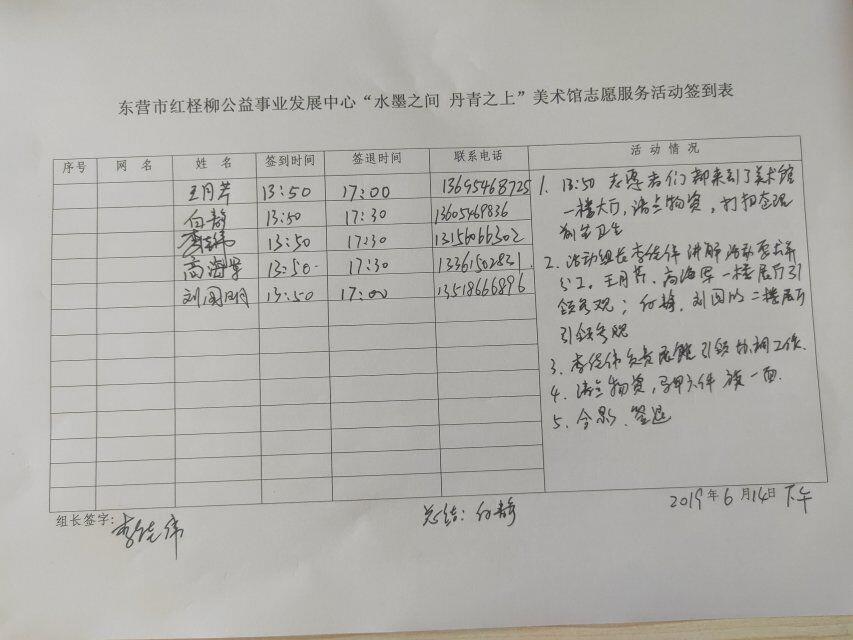 东营市红柽柳公益事业发展中心“水墨之间 丹青之上”美术馆志愿服务活动签到表
序号 网 名 姓 名 签到时间 签退时间 联系电话 活 动 情 况
王月芹 13:50 17:00 13695468725
白静 13:50 17:30 13605469836
李佳伟 13:50 17:30 13156066302
高海军 13:50 17:30 13361502821
刘国明 13:50 17:00 13518666896
1. 13:50 志愿者们都来到了美术馆
一楼大厅,清点物资,打扫整理
卫生
2. 活动组长李佳伟讲解活动要求并
分工。王月芹、高海军一楼展厅引
领参观;白静、刘国明二楼展厅
引领参观
3. 李佳伟负责展馆引领协调工作.
4. 清点物资,马甲 放一面.
5. 合影、签退
组长签字:李佳伟
总结:白静
2019年6月14日下午